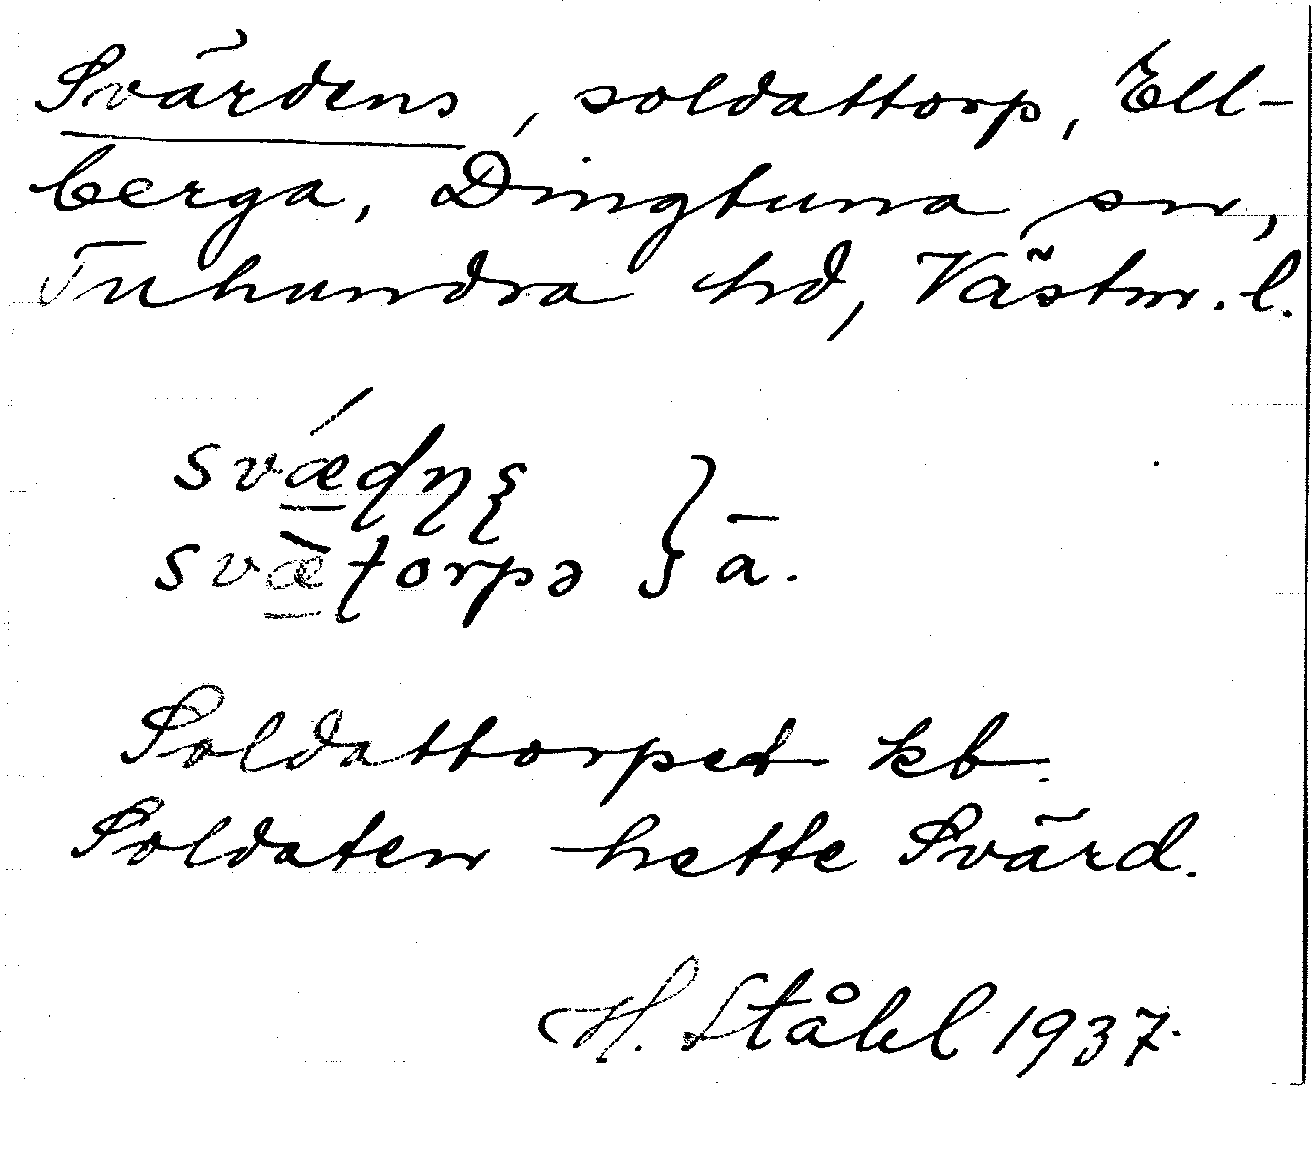 Svärdens, soldattorp, Ell-
berga, Dingtuna sn,
Tuhundra hd, Västm. l.
svǽɖɳʂ } ā.
svæ̀ʈorpə
Soldattorpet kb.
Soldaten hette Svärd.
H. Ståhl 1937.